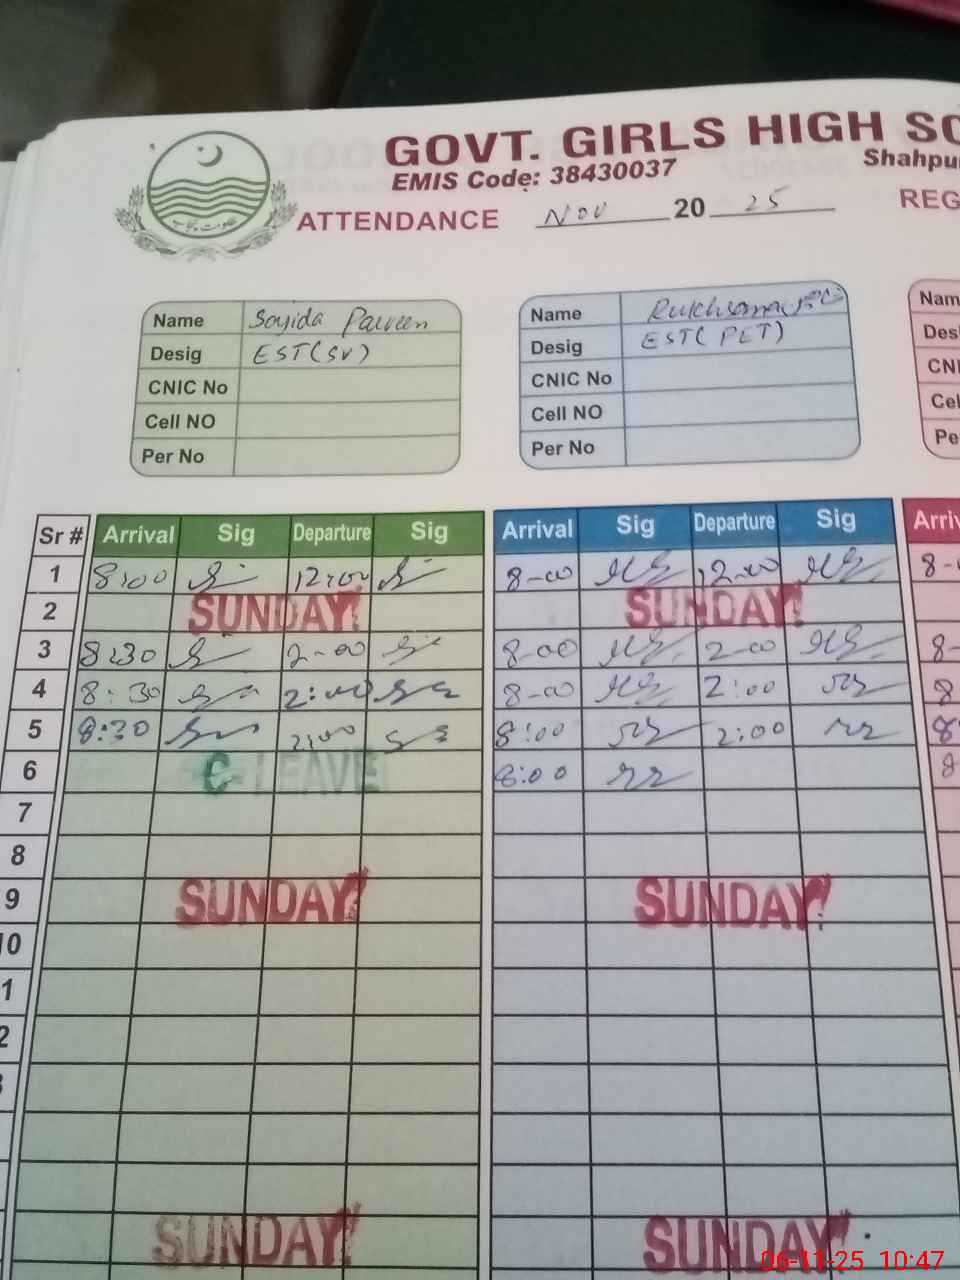 GOVT. GIRLS HIGH SC
EMIS Code: 38430037 Shahpu
ATTENDANCE Nov 20 25 REG
Name Sajida Parveen
Desig EST(SV)
CNIC No
Cell NO
Per No
Name
Desig EST(PET)
CNIC No
Cell NO
Per No
Nam
Des
CNI
Cel
Pe
Sr # Arrival Sig Departure Sig Arrival Sig Departure Sig Arriv
1 8:00 12:00 8-00 12-00 8-
2 SUNDAY! SUNDAY!
3 8:30 2-00 8-00 2-00 8-
4 8:30 2:00 8-00 2:00 8
5 8:30 2:00 8:00 2:00 8
6 C-LEAVE 8:00 8
7
8
9 SUNDAY! SUNDAY!
10
1
2
3
SUNDAY! SUNDAY!
06-11-25 10:47